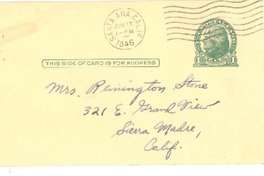 SANTA ANA, CALIF.
1946
THIS SIDE OF CARD IS FOR ADDRESS
Mrs. Remington Stone
321 E. Grand View
Sierra Madre,
Calif.